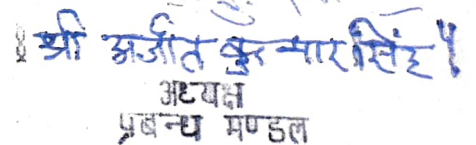 श्री अजीत कुमार सिंह
अध्यक्ष
प्रबन्ध मण्डल